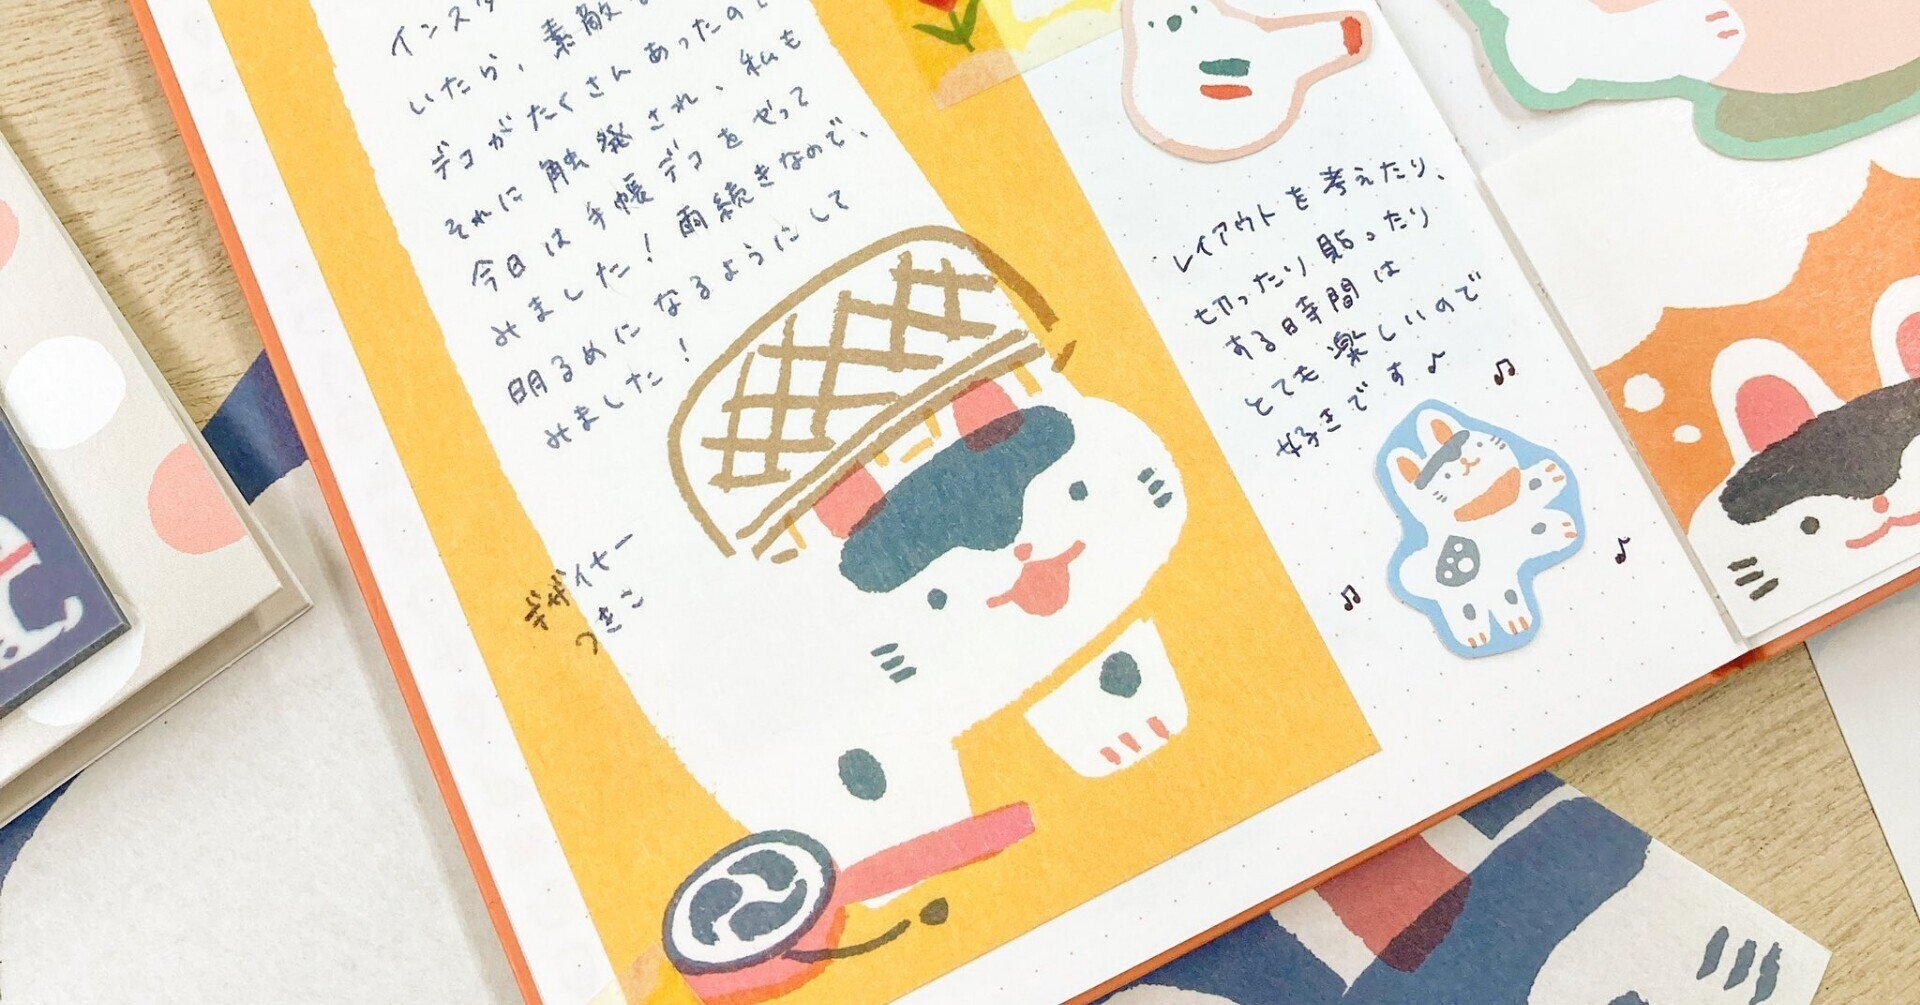 インスタ
いたら、素敵
デコがたくさんあったので
それに触発され、私も
今日は手帳デコをやって
みました！雨続きなので、
明るめになるようにして
みました！
デザイナー
つきこ
レイアウトを考えたり、
切ったり貼ったり
する時間は
とても楽しいので
好きです♪